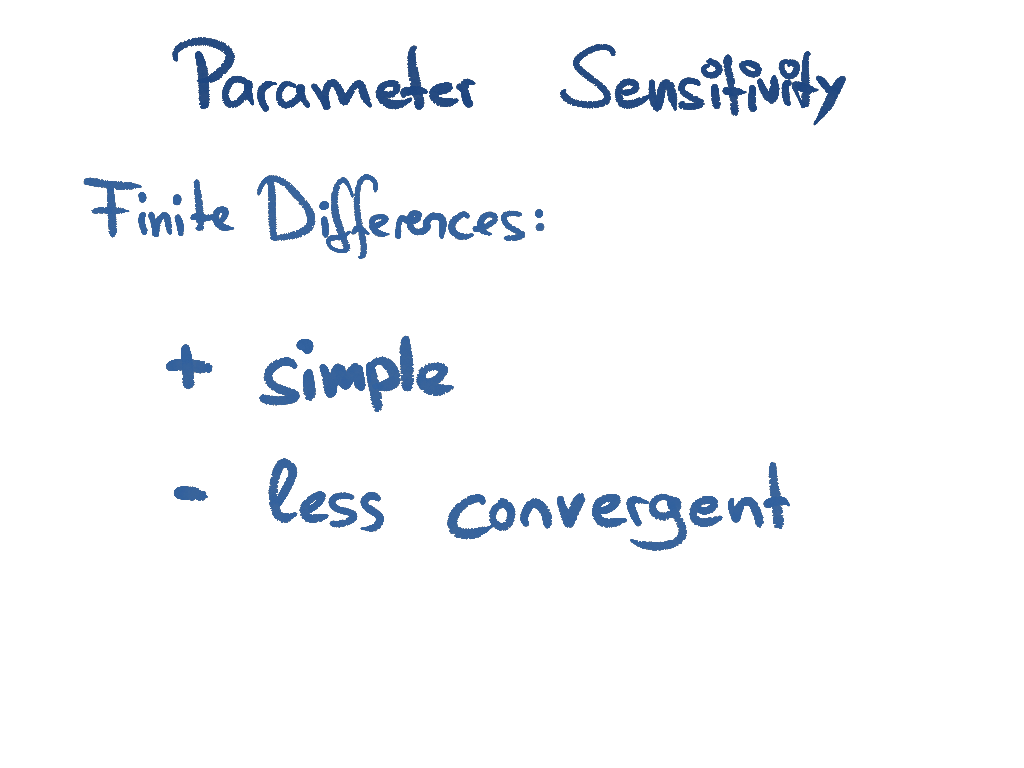 Parameter Sensitivity
Finite Differences:
+ simple
- less convergent